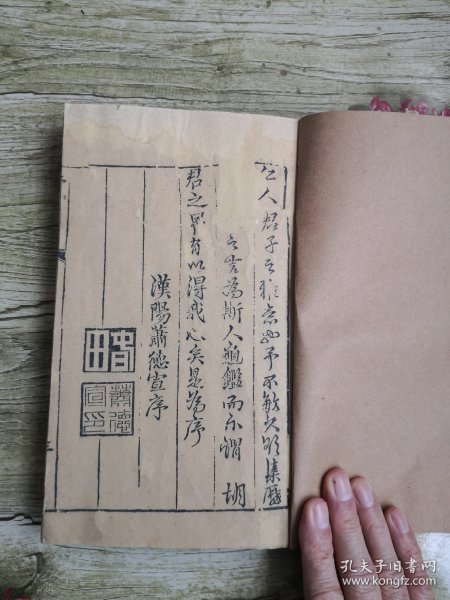 之人君子之雅意如予不敏久明集歷
之書為斯人龜鑑而不謂胡
君之畀有以得我心矣是為序
漢陽蕭德宣序
蕭德
宣印
孔夫子旧书网
www.kongfz.com